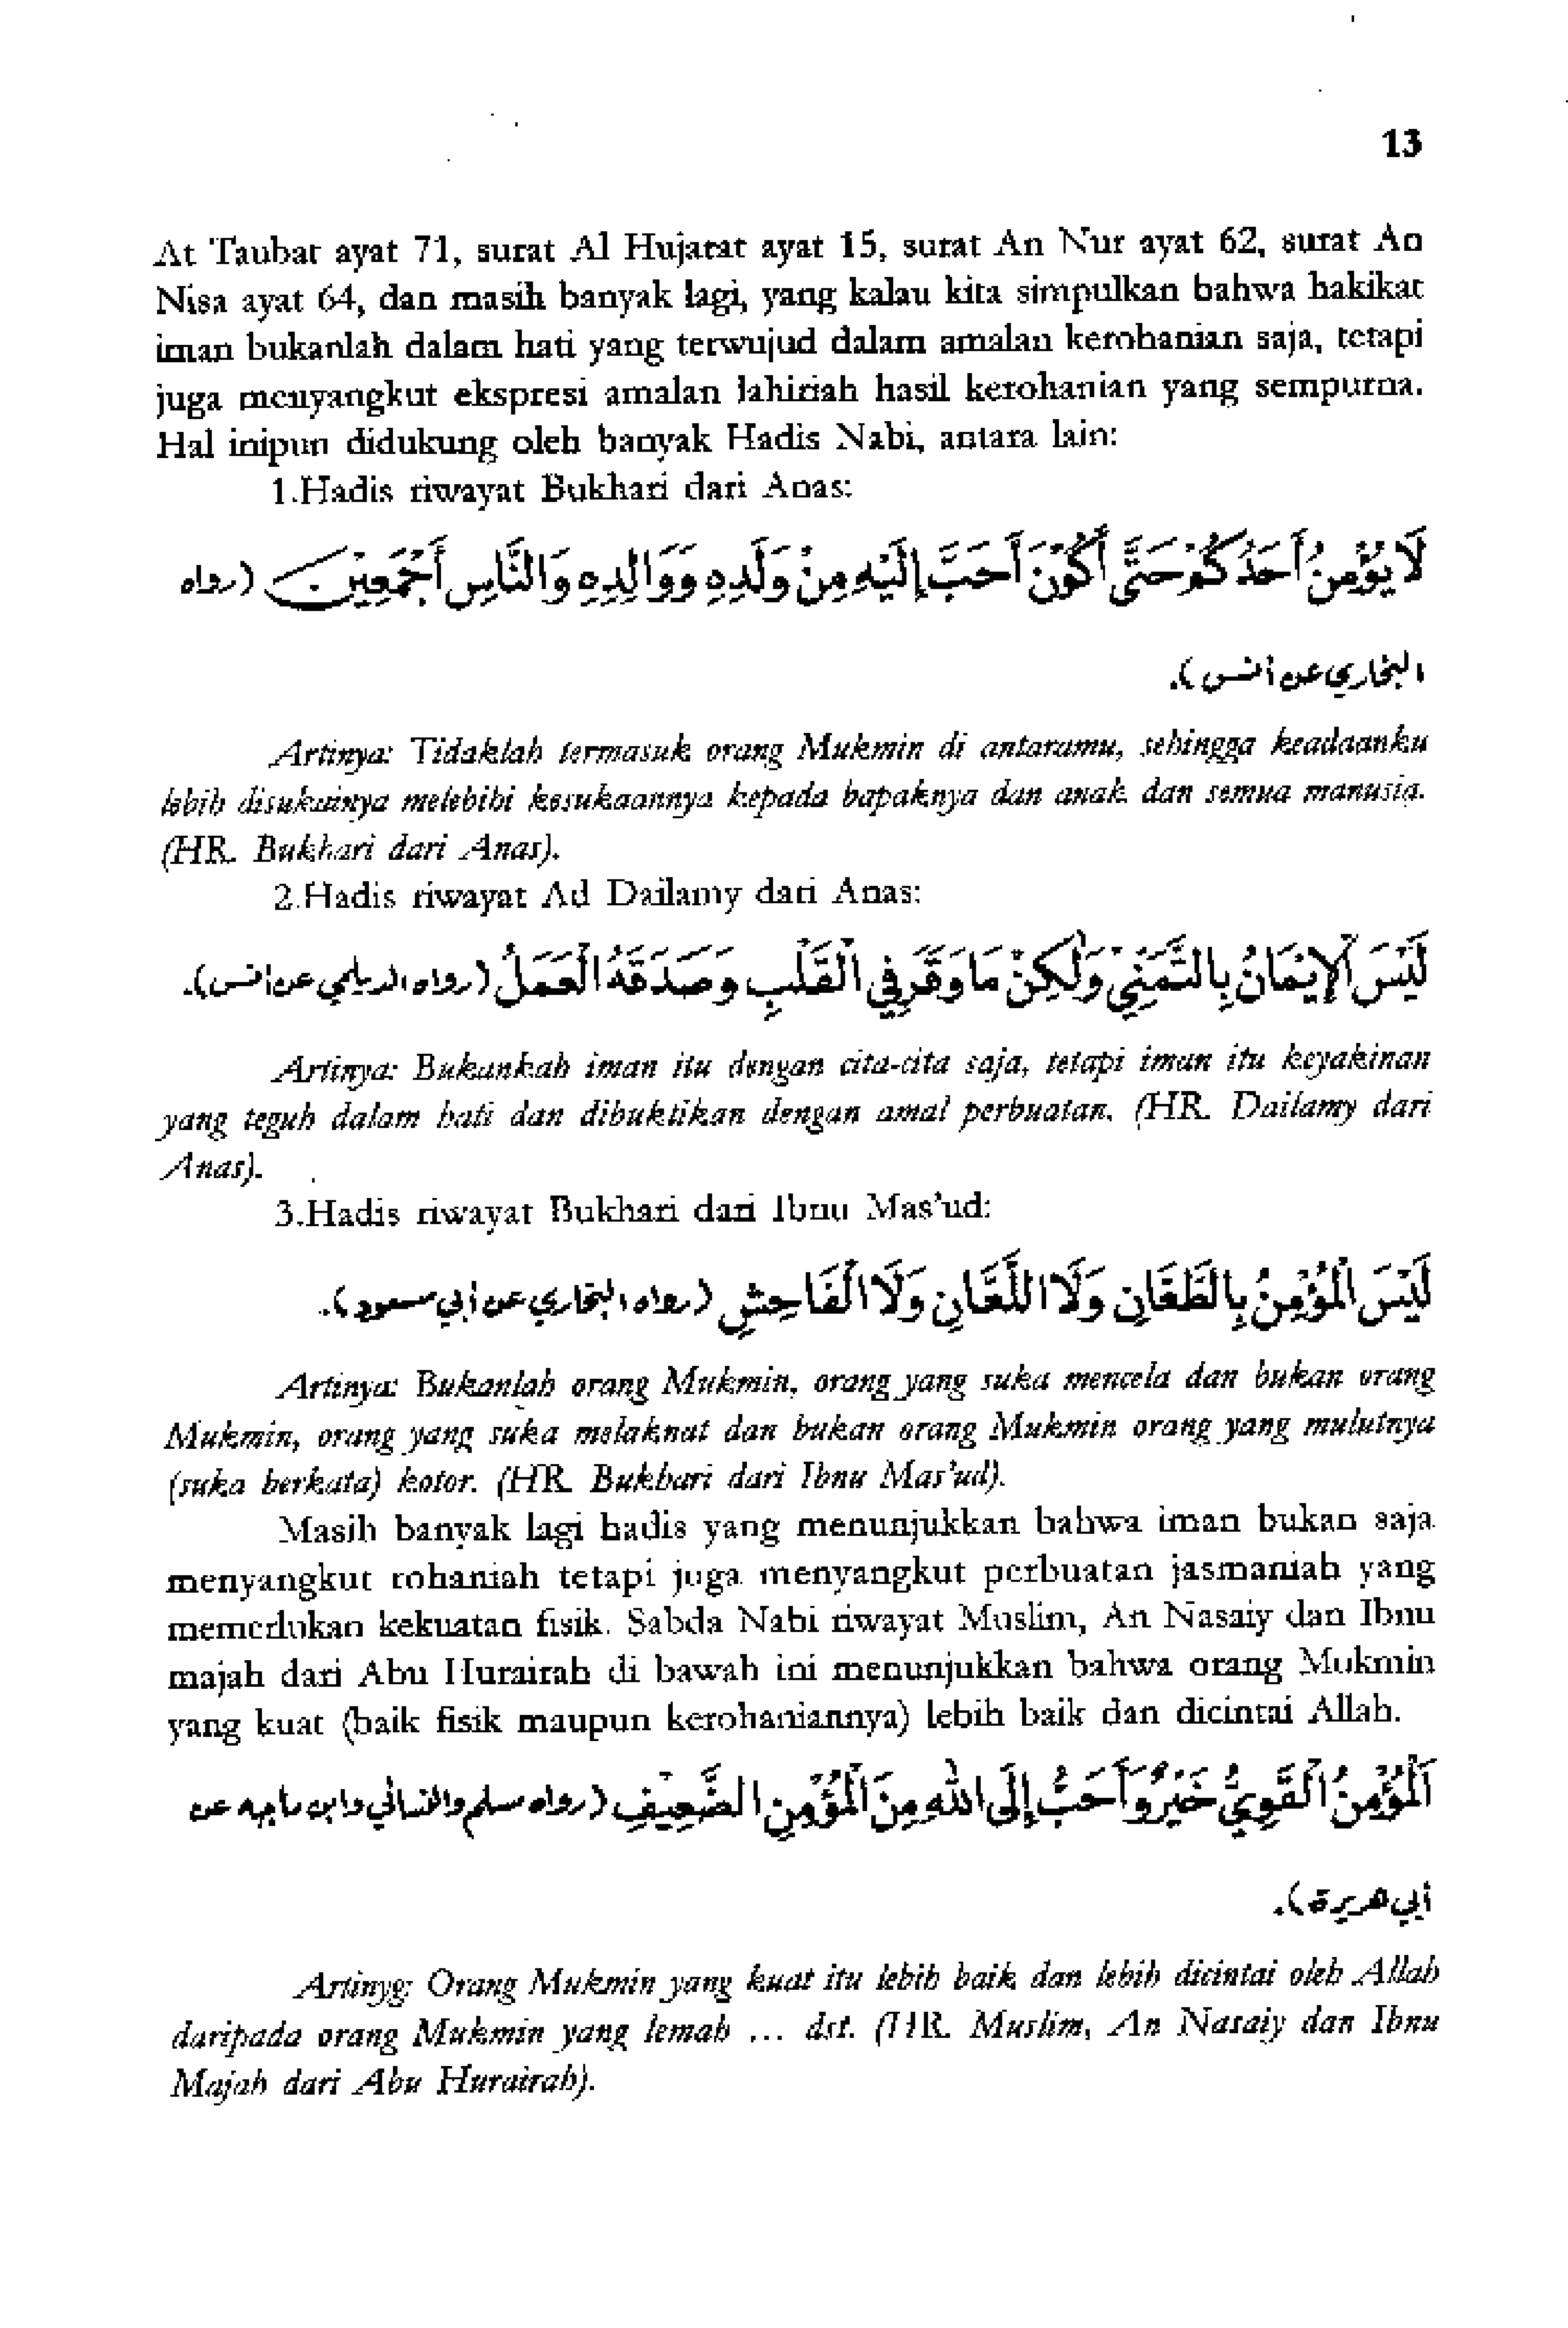 13
At Taubat ayat 71, surat Al Hujarat ayat 15, surat An Nur ayat 62, surat An
Nisa ayat 64, dan masih banyak lagi, yang kalau kita simpulkan bahwa hakikat
iman bukanlah dalam hati yang terwujud dalam amalan kerohanian saja, tetapi
juga menyangkut ekspresi amalan lahiriah hasil kerohanian yang sempurna.
Hal inipun didukung oleh banyak Hadis Nabi, antara lain:
1.Hadis riwayat Bukhari dari Anas:
لَا يُؤْمِنُ أَحَدُكُمْ حَتَّى أَكُوْنَ أَحَبَّ إِلَيْهِ مِنْ وَلَدِهِ وَوَالِدِهِ وَالنَّاسِ أَجْمَعِيْنَ (رواه
البخاري عن أنس).
Artinya: Tidaklah termasuk orang Mukmin di antaramu, sehingga keadaanku
lebih disukainya melebihi kesukaannya kepada bapaknya dan anak dan semua manusia.
(HR. Bukhari dari Anas).
2.Hadis riwayat Ad Dailamy dari Anas:
لَيْسَ الْإِيْمَانُ بِالتَّمَنِّيْ وَلَكِنْ مَا وَقَرَ فِي الْقَلْبِ وَصَدَقَهُ الْعَمَلُ (رواه الديلمي عن انس).
Artinya: Bukankah iman itu dengan cita-cita saja, tetapi iman itu keyakinan
yang teguh dalam hati dan dibuktikan dengan amal perbuatan. (HR. Dailamy dari
Anas).
3.Hadis riwayat Bukhari dari Ibnu Mas'ud:
لَيْسَ الْمُؤْمِنُ بِالطَّعَّانِ وَلَا اللَّعَّانِ وَلَا الْفَاحِشِ (رواه البخاري عن أبي مسعود).
Artinya: Bukanlah orang Mukmin, orang yang suka mencela dan bukan orang
Mukmin, orang yang suka melaknat dan bukan orang Mukmin orang yang mulutnya
(suka berkata) kotor. (HR. Bukhari dari Ibnu Mas'ud).
Masih banyak lagi hadis yang menunjukkan bahwa iman bukan saja
menyangkut rohaniah tetapi juga menyangkut perbuatan jasmaniah yang
memerlukan kekuatan fisik. Sabda Nabi riwayat Muslim, An Nasaiy dan Ibnu
majah dari Abu Hurairah di bawah ini menunjukkan bahwa orang Mukmin
yang kuat (baik fisik maupun kerohaniannya) lebih baik dan dicintai Allah.
اَلْمُؤْمِنُ الْقَوِيُّ خَيْرٌ وَأَحَبُّ إِلَى اللهِ مِنَ الْمُؤْمِنِ الضَّعِيْفِ (رواه مسلم والنسائي وابن ماجه عن
أبي هريرة).
Artinya: Orang Mukmin yang kuat itu lebih baik dan lebih dicintai oleh Allah
daripada orang Mukmin yang lemah ... dst. (HR. Muslim, An Nasaiy dan Ibnu
Majah dari Abu Hurairah).